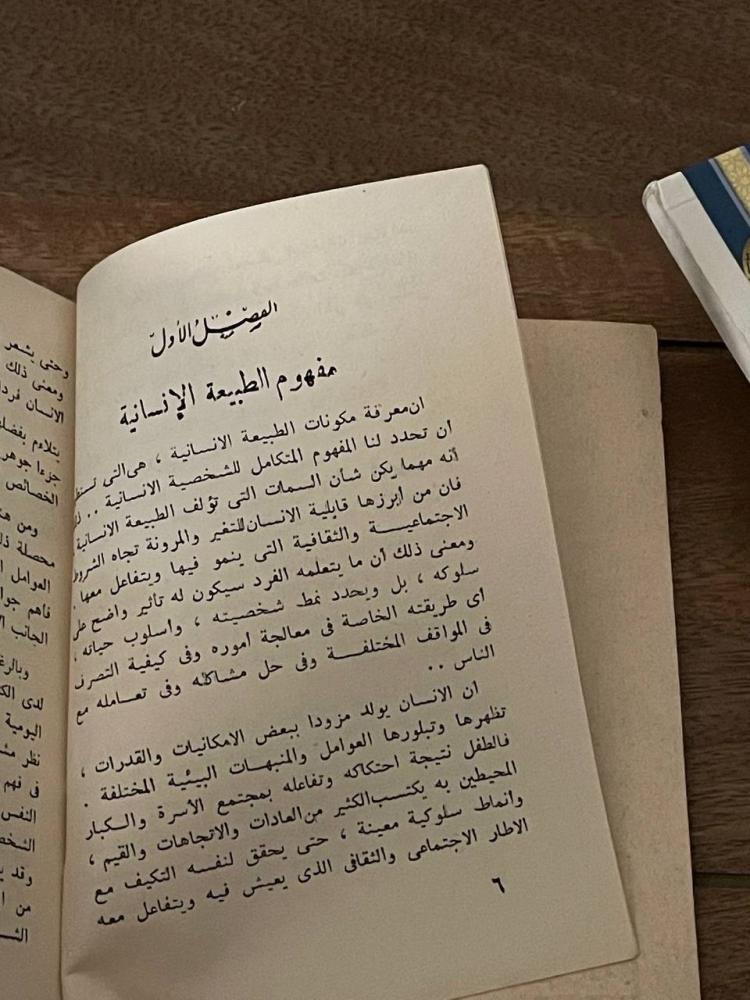 الفصل الأول
مفهوم الطبيعة الإنسانية
ان معرفة مكونات الطبيعة الانسانية ، هى التى
أن تحدد لنا المفهوم المتكامل للشخصية الانسانية ..
أنه مهما يكن شأن السمات التى تؤلف الطبيعة الانسانية
فان من أبرزها قابلية الانسان للتغير والمرونة تجاه الشروط
الاجتماعية والثقافية التى ينمو فيها ويتفاعل معها .
ومعنى ذلك أن ما يتعلمه الفرد سيكون له تأثير واضح على
سلوكه ، بل ويحدد نمط شخصيته ، واسلوب حياته ،
أى طريقته الخاصة فى معالجة أموره وفى كيفية التصرف
فى المواقف المختلفة وفى حل مشاكله وفى تعامله مع
الناس ..
أن الانسان يولد مزودا ببعض الامكانيات والقدرات ،
تظهرها وتبلورها العوامل والمنبهات البيئية المختلفة .
فالطفل نتيجة احتكاكه وتفاعله بمجتمع الأسرة والكبار
المحيطين به يكتسب الكثير من العادات والاتجاهات والقيم ،
وانماط سلوكية معينة ، حتى يحقق لنفسه التكيف مع
الاطار الاجتماعى والثقافى الذى يعيش فيه ويتفاعل معه
٦
وحتى يشعر
ومعنى ذلك
الانسان
يتلاءم
جزءا
الخصائص
ومن
محصلة
العوامل
فاهم
الجانب
لدى
اليومية
نظر
فى فهم
النفس
وقد
من